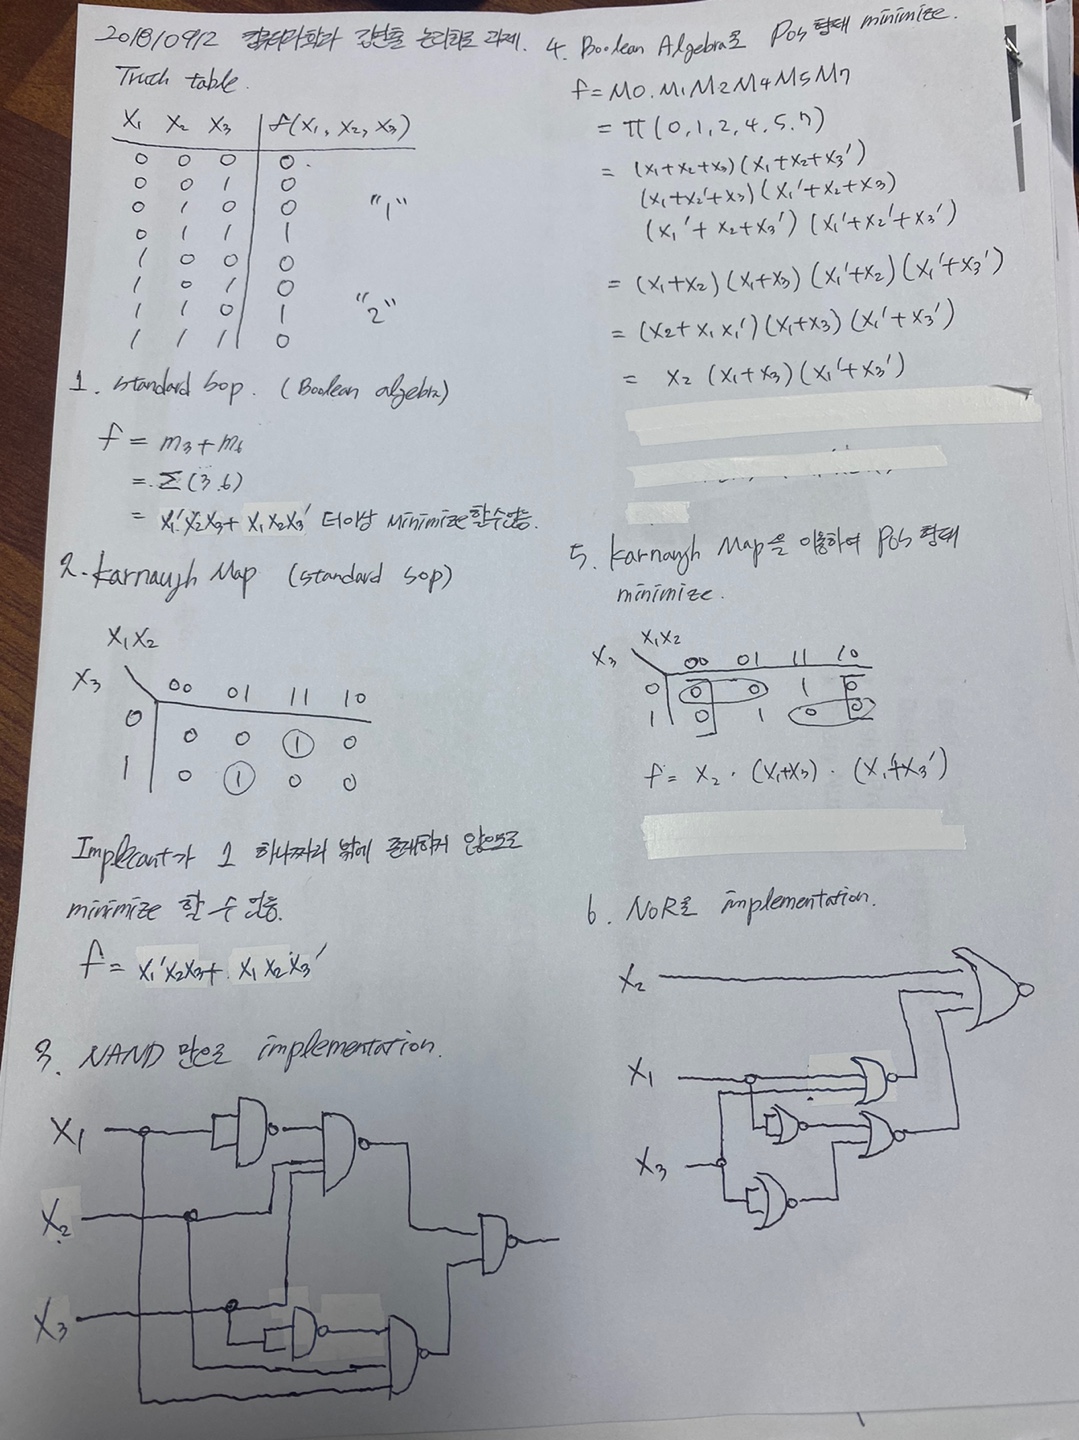 201810912 컴퓨터과학과 논리회로 과제.
Truth table.
X₁ X₂ X₃ f(X₁, X₂, X₃)
0 0 0 0
0 0 1 0
0 1 0 0 "1"
0 1 1 1
1 0 0 0
1 0 1 0
1 1 0 1 "2"
1 1 1 0
1. standard sop. (Boolean algebra)
f = m₃ + m₆
= Σ(3.6)
= X₁'X₂X₃ + X₁X₂X₃' 더이상 minimize 할수없음.
2. Karnaugh Map (standard sop)
X₁X₂
X₃ 00 01 11 10
0 0 0 1 0
1 0 1 0 0
Implicant가 1 하나짜리 밖에 존재하지 않으므로
minimize 할 수 없음.
f = X₁'X₂X₃ + X₁X₂X₃'
3. NAND 만으로 implementation.
X₁
X₂
X₃
4. Boolean Algebra로 Pos 형태 minimize.
f = M0. M1 M2 M4 M5 M7
= π(0,1,2,4,5,7)
= (X₁+X₂+X₃)(X₁+X₂+X₃')
(X₁+X₂'+X₃)(X₁'+X₂+X₃)
(X₁'+X₂+X₃')(X₁'+X₂'+X₃')
= (X₁+X₂)(X₁+X₃)(X₁'+X₂)(X₁'+X₃')
= (X₂+X₁X₁')(X₁+X₃)(X₁'+X₃')
= X₂(X₁+X₃)(X₁'+X₃')
5. Karnaugh Map을 이용하여 Pos 형태
minimize.
X₁X₂
X₃ 00 01 11 10
0 0 0 1 0
1 0 1 0 0
f = X₂ · (X₁+X₃) · (X₁'+X₃')
6. NOR로 implementation.
X₂
X₁
X₃